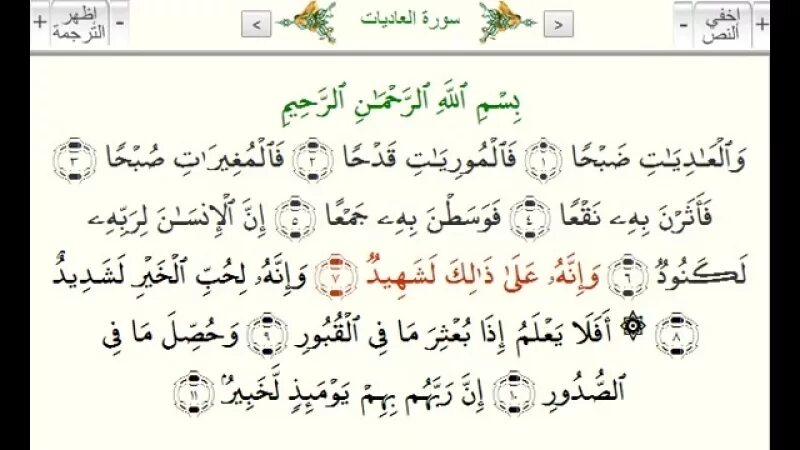 اظهر
الترجمة
+ -
< سورة العاديات >
اخفي
النص
- +
بِسْمِ ٱللَّهِ ٱلرَّحْمَـٰنِ ٱلرَّحِيمِ
وَٱلْعَـٰدِيَـٰتِ ضَبْحًا ١ فَٱلْمُورِيَـٰتِ قَدْحًا ٢ فَٱلْمُغِيرَٰتِ صُبْحًا ٣
فَأَثَرْنَ بِهِۦ نَقْعًا ٤ فَوَسَطْنَ بِهِۦ جَمْعًا ٥ إِنَّ ٱلْإِنسَـٰنَ لِرَبِّهِۦ
لَكَنُودٌ ٦ وَإِنَّهُۥ عَلَىٰ ذَٰلِكَ لَشَهِيدٌ ٧ وَإِنَّهُۥ لِحُبِّ ٱلْخَيْرِ لَشَدِيدٌ
٨ ۞ أَفَلَا يَعْلَمُ إِذَا بُعْثِرَ مَا فِى ٱلْقُبُورِ ٩ وَحُصِّلَ مَا فِى
ٱلصُّدُورِ ١٠ إِنَّ رَبَّهُم بِهِمْ يَوْمَئِذٍ لَّخَبِيرٌۢ ١١